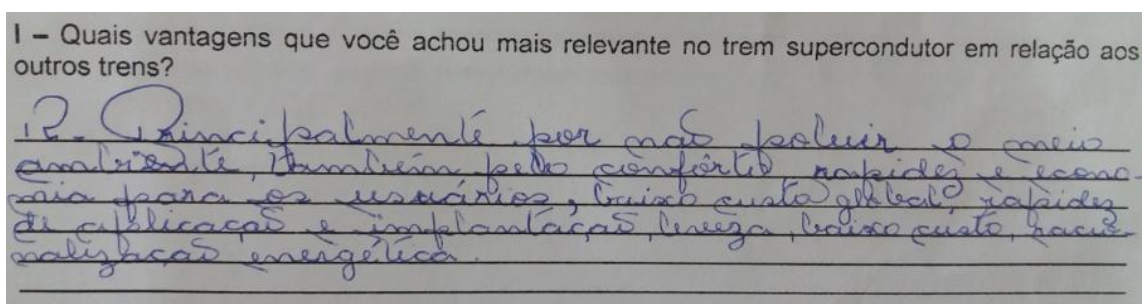 I – Quais vantagens que você achou mais relevante no trem supercondutor em relação aos
outros trens?
R. Principalmente por não poluir o meio
ambiente, também pelo conforto rapidez e econo-
mia para os usuários, baixo custo global, rapidez
de aplicação e implantação, leveza, baixo custo, racio-
nalização energética.